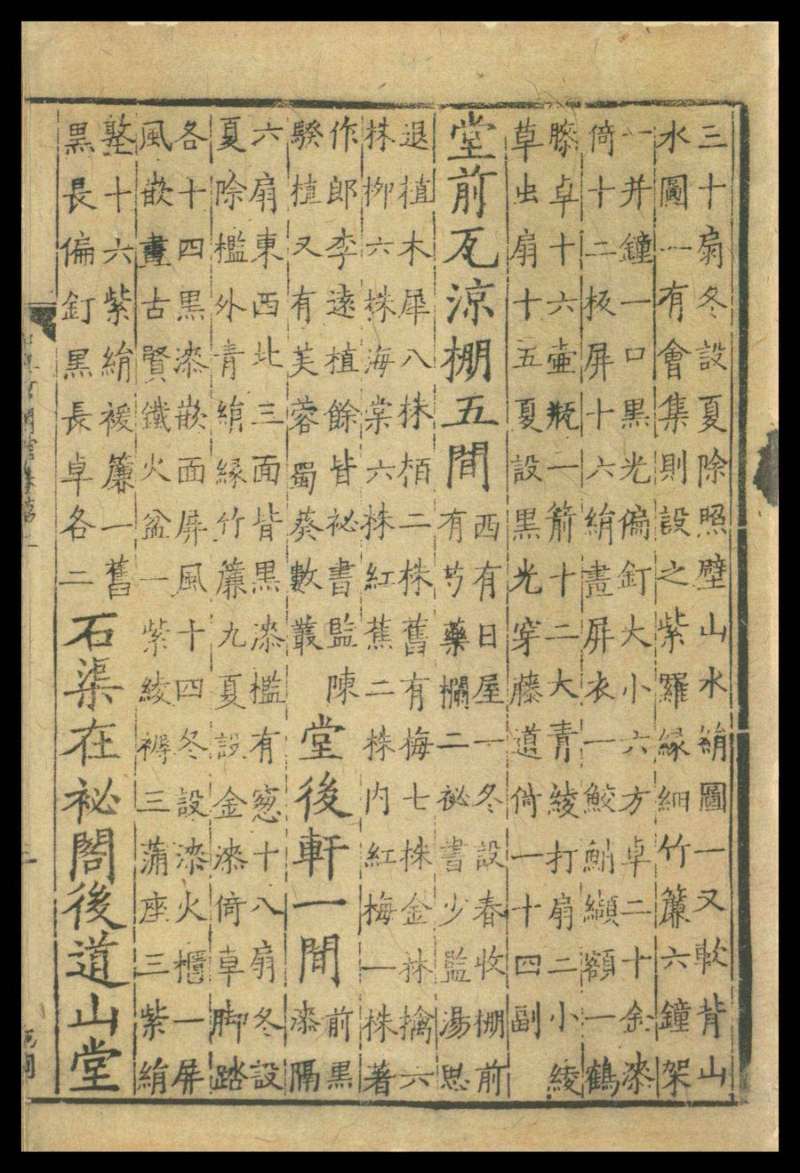 三十扇冬設夏除照壁山水絹圖一又軟背山
水圖一有會集則設之紫羅縁細竹簾六鐘架
一并鐘一口黑光偏釘大小六方卓二十金漆
倚十二板屏十六絹畫屏衣一鮫鮹纈額一鶴
膝卓十六壷瓶一箭十二大青綾打扇二小綾
草虫扇十五夏設黑光穿藤道倚一十四副
堂前瓦涼棚五間
西有日屋一冬設春收棚前
有芍藥欄二祕書少監湯思
退植木犀八株栢二株舊有梅七株金林擒六
株栁六株海棠六株紅蕉二株内紅梅一株著
作郎李逺植餘皆祕書監陳
騤植又有芙蓉蜀葵數叢
堂後軒一間
前黑
漆隔
六扇東西北三面皆黑漆檻有窓十八扇冬設
夏除檻外青絹縁竹簾九夏設金漆倚卓脚踏
各十四黑漆嵌面屏風十四冬設漆火櫃一屏
風嵌畫古賢鐵火盆一紫綾褥三蒲座三紫絹
墪十六紫絹煖簾一舊
黑長偏釘黑長卓各二
石渠在祕閣後道山堂